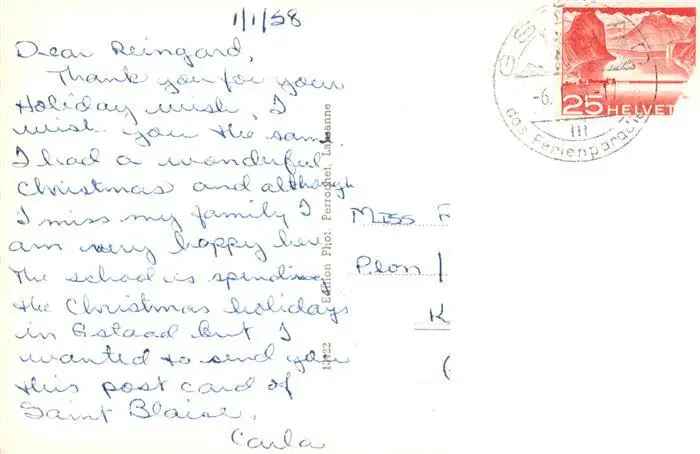 1/1/58
Dear Reingard,
Thank you for your
Holiday wish, I
wish you the same.
I had a wonderful
Christmas and although
I miss my family I
am very happy here.
The school is spending
the Christmas holidays
in Gstaad but I
wanted to send you
this post card of
Saint Blaise.
Carla
13922 Edition Phot. Perrochet, Lausanne
Miss
Plon
K
GSTAAD
-6.
III
das Ferienparadies
25 HELVET